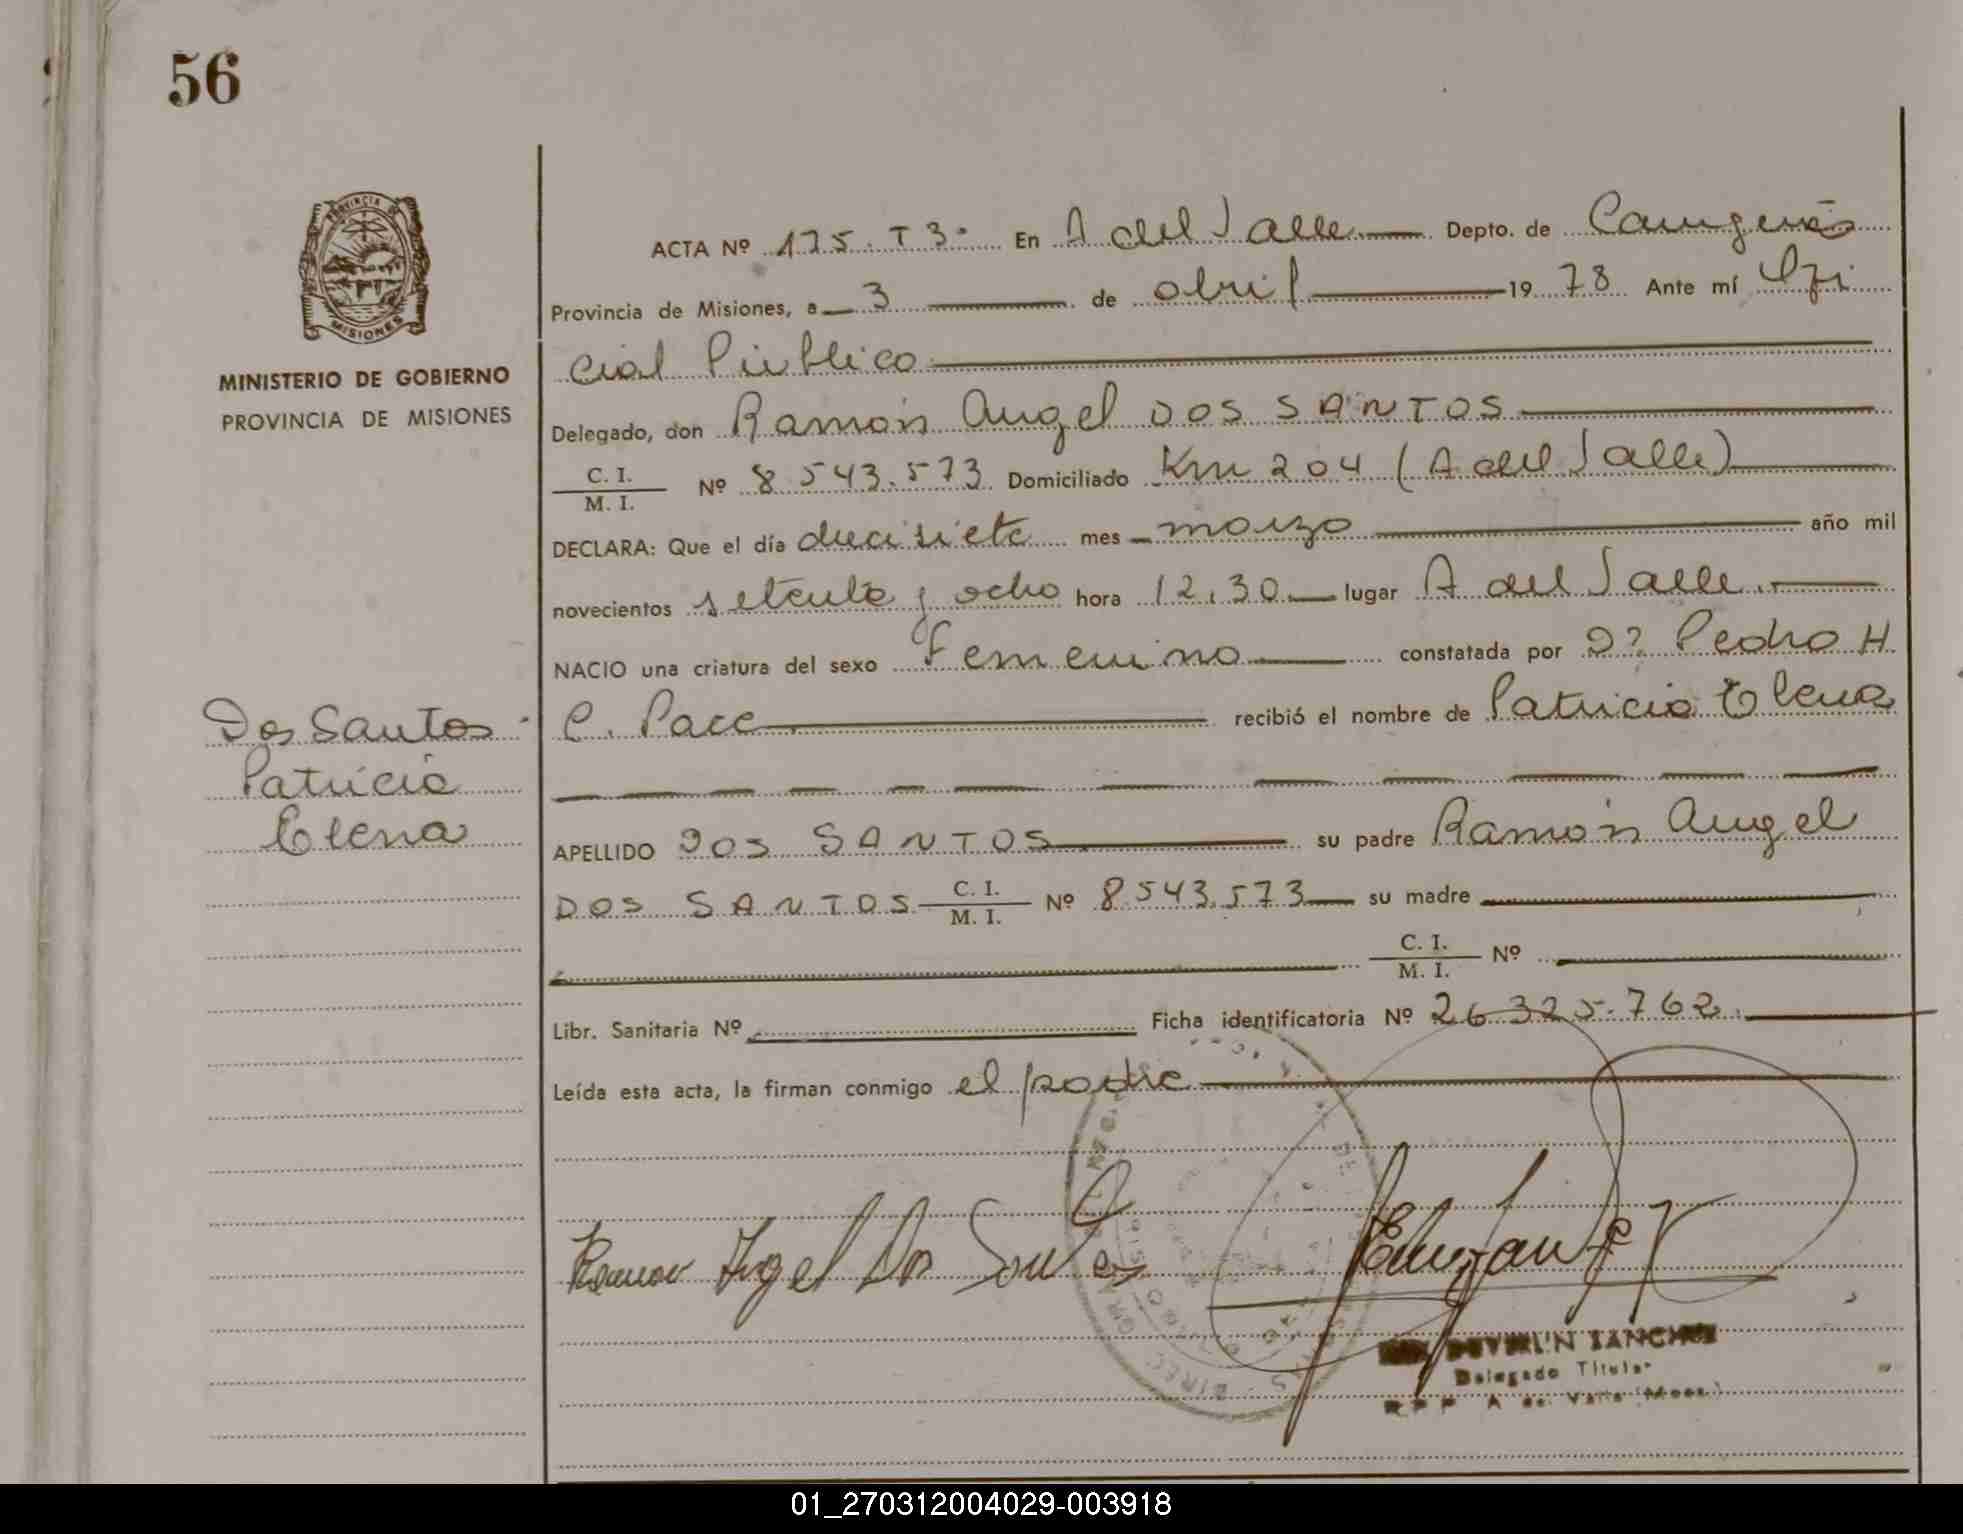 56
PROVINCIA DE
MISIONES
MINISTERIO DE GOBIERNO
PROVINCIA DE MISIONES
Dos Santos
Patricia
Elena
ACTA Nº 175. T 3º En A del Valle Depto. de Caingúas
Provincia de Misiones, a 3 de abril 1978 Ante mí Ofi
cial Público
Delegado, don Ramón Angel DOS SANTOS
C. I.
M. I. Nº 8.543.573 Domiciliado Km 204 (A del Valle)
DECLARA: Que el día diecisiete mes marzo año mil
novecientos setenta y ocho hora 12,30 lugar A del Valle
NACIO una criatura del sexo Femenino constatada por Dº Pedro H
C. Pace recibió el nombre de Patricia Elena
APELLIDO DOS SANTOS su padre Ramón Angel
DOS SANTOS C. I.
M. I. Nº 8.543.573 su madre
C. I.
M. I. Nº
Libr. Sanitaria Nº Ficha identificatoria Nº 26.325.762
Leída esta acta, la firman conmigo el padre
Ramon Angel Dos Santos
SANCHEZ
Delegado Titular
A de Valle (Mnes.)
01_270312004029-003918